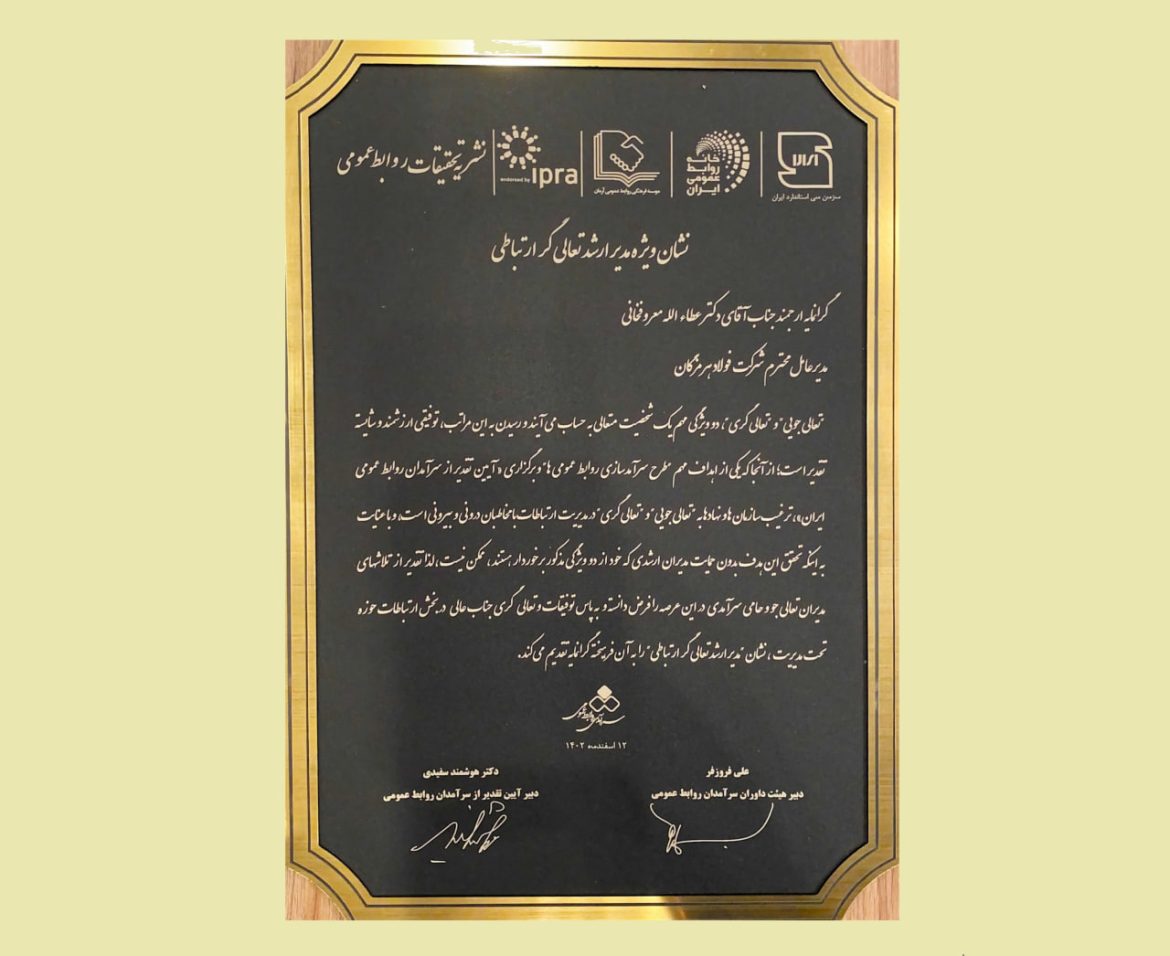 ایران
سازمان ملی استاندارد ایران
خانه
روابط
عمومی
ایران
موسسه فرهنگی روابط عمومی آرمان
endorsed by ipra
نشریه تحقیقات روابط عمومی
نشان ویژه مدیر ارشد تعالی گر ارتباطی
گرانمایه ارجمند جناب آقای دکتر عطاء الله معروفخانی
مدیرعامل محترم شرکت فولاد هرمزگان
"تعالی جویی" و "تعالی گری"، دو ویژگی مهم یک شخصیت متعالی به حساب می آیند و رسیدن به این مراتب، توفیقی ارزشمند و شایسته
تقدیر است؛ از آنجا که یکی از اهداف مهم "طرح سرآمدسازی روابط عمومی ها" و برگزاری «آیین تقدیر از سرآمدان روابط عمومی
ایران»، ترغیب سازمان ها و نهادها به "تعالی جویی" و "تعالی گری" در مدیریت ارتباطات با مخاطبان درونی و بیرونی است، و با عنایت
به اینکه تحقق این هدف بدون حمایت مدیران ارشدی که خود از دو ویژگی مذکور برخوردار هستند، ممکن نیست، لذا تقدیر از تلاشهای
مدیران تعالی جو و حامی سرآمدی در این عرصه را فرض دانسته و به پاس توفیقات و تعالی گری جناب عالی در بخش ارتباطات حوزه
تحت مدیریت، نشان "مدیر ارشد تعالی گر ارتباطی" را به آن فرهیخته گرانمایه تقدیم می کند.
سرآمدی روابط عمومی
۱۲ اسفندماه ۱۴۰۲
علی فروزفر
دبیر هیئت داوران سرآمدان روابط عمومی
دکتر هوشمند سفیدی
دبیر آیین تقدیر از سرآمدان روابط عمومی